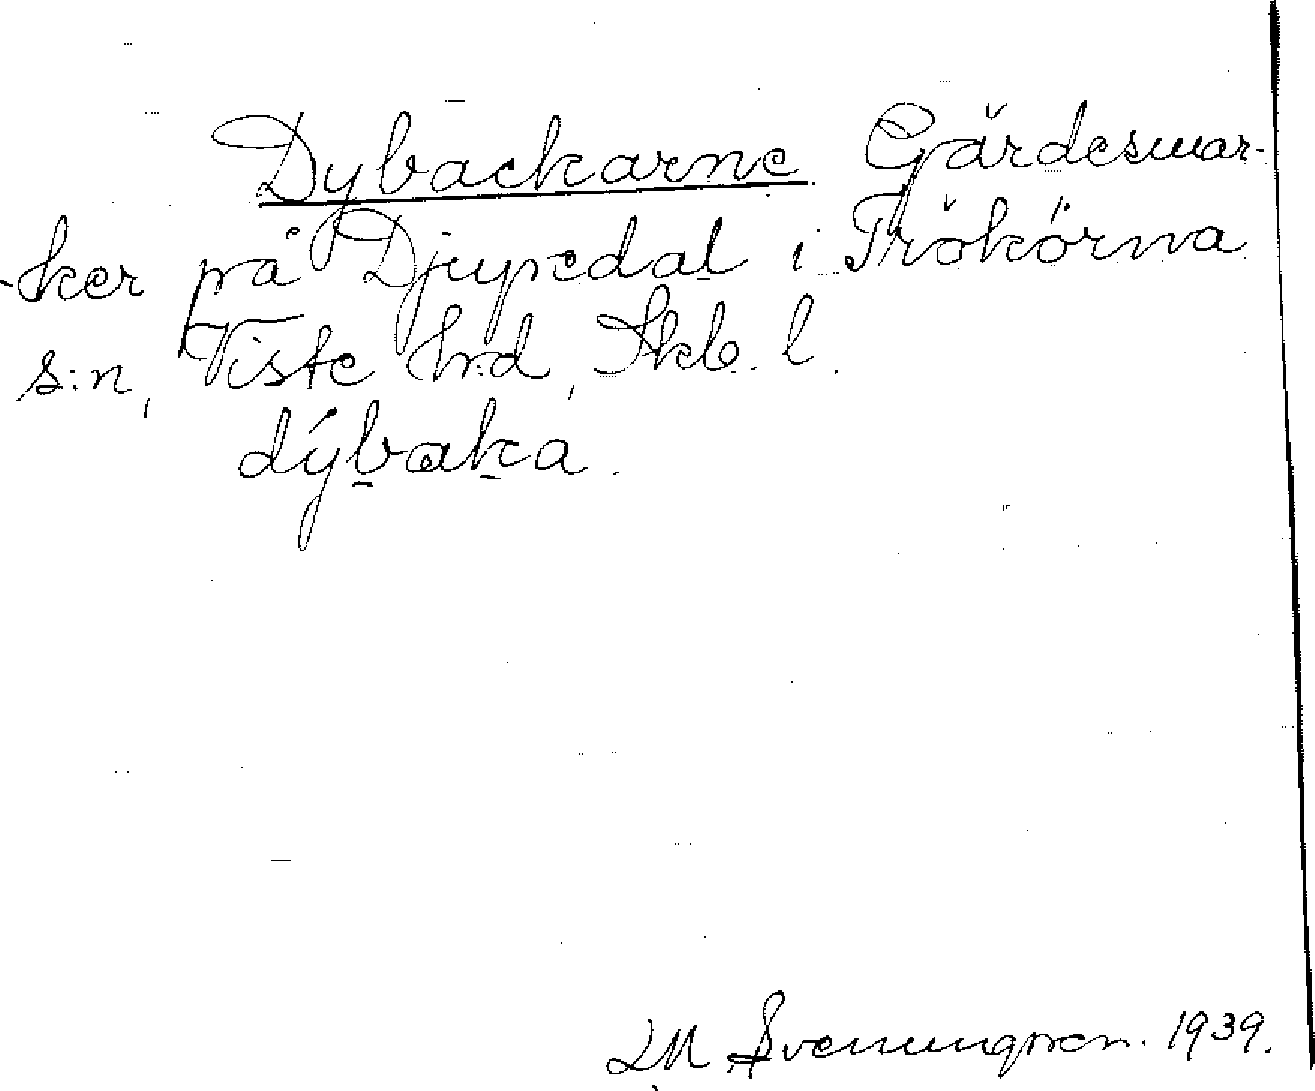 Dybackarne Gärdesmar-
-ker på Djupedal i Trökörna
s:n, Viste hrd, Skb. l.
dýbaka.
LM Svenungsson. 1939.